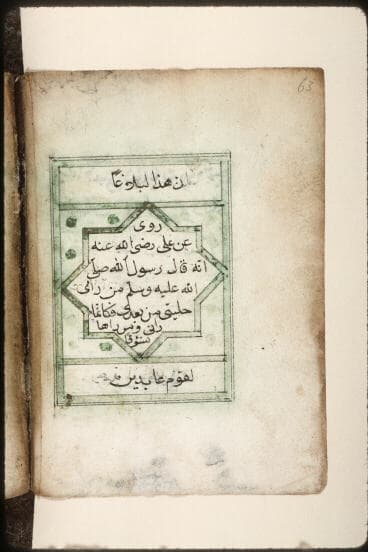 63
ان هذا لبلاغا
روى
عن علي رضي الله عنه
انه قال رسول الله صلى
الله عليه وسلم من رأى
حليتي من بعدي فكانما
راني ومن راها
لقوم عابدين